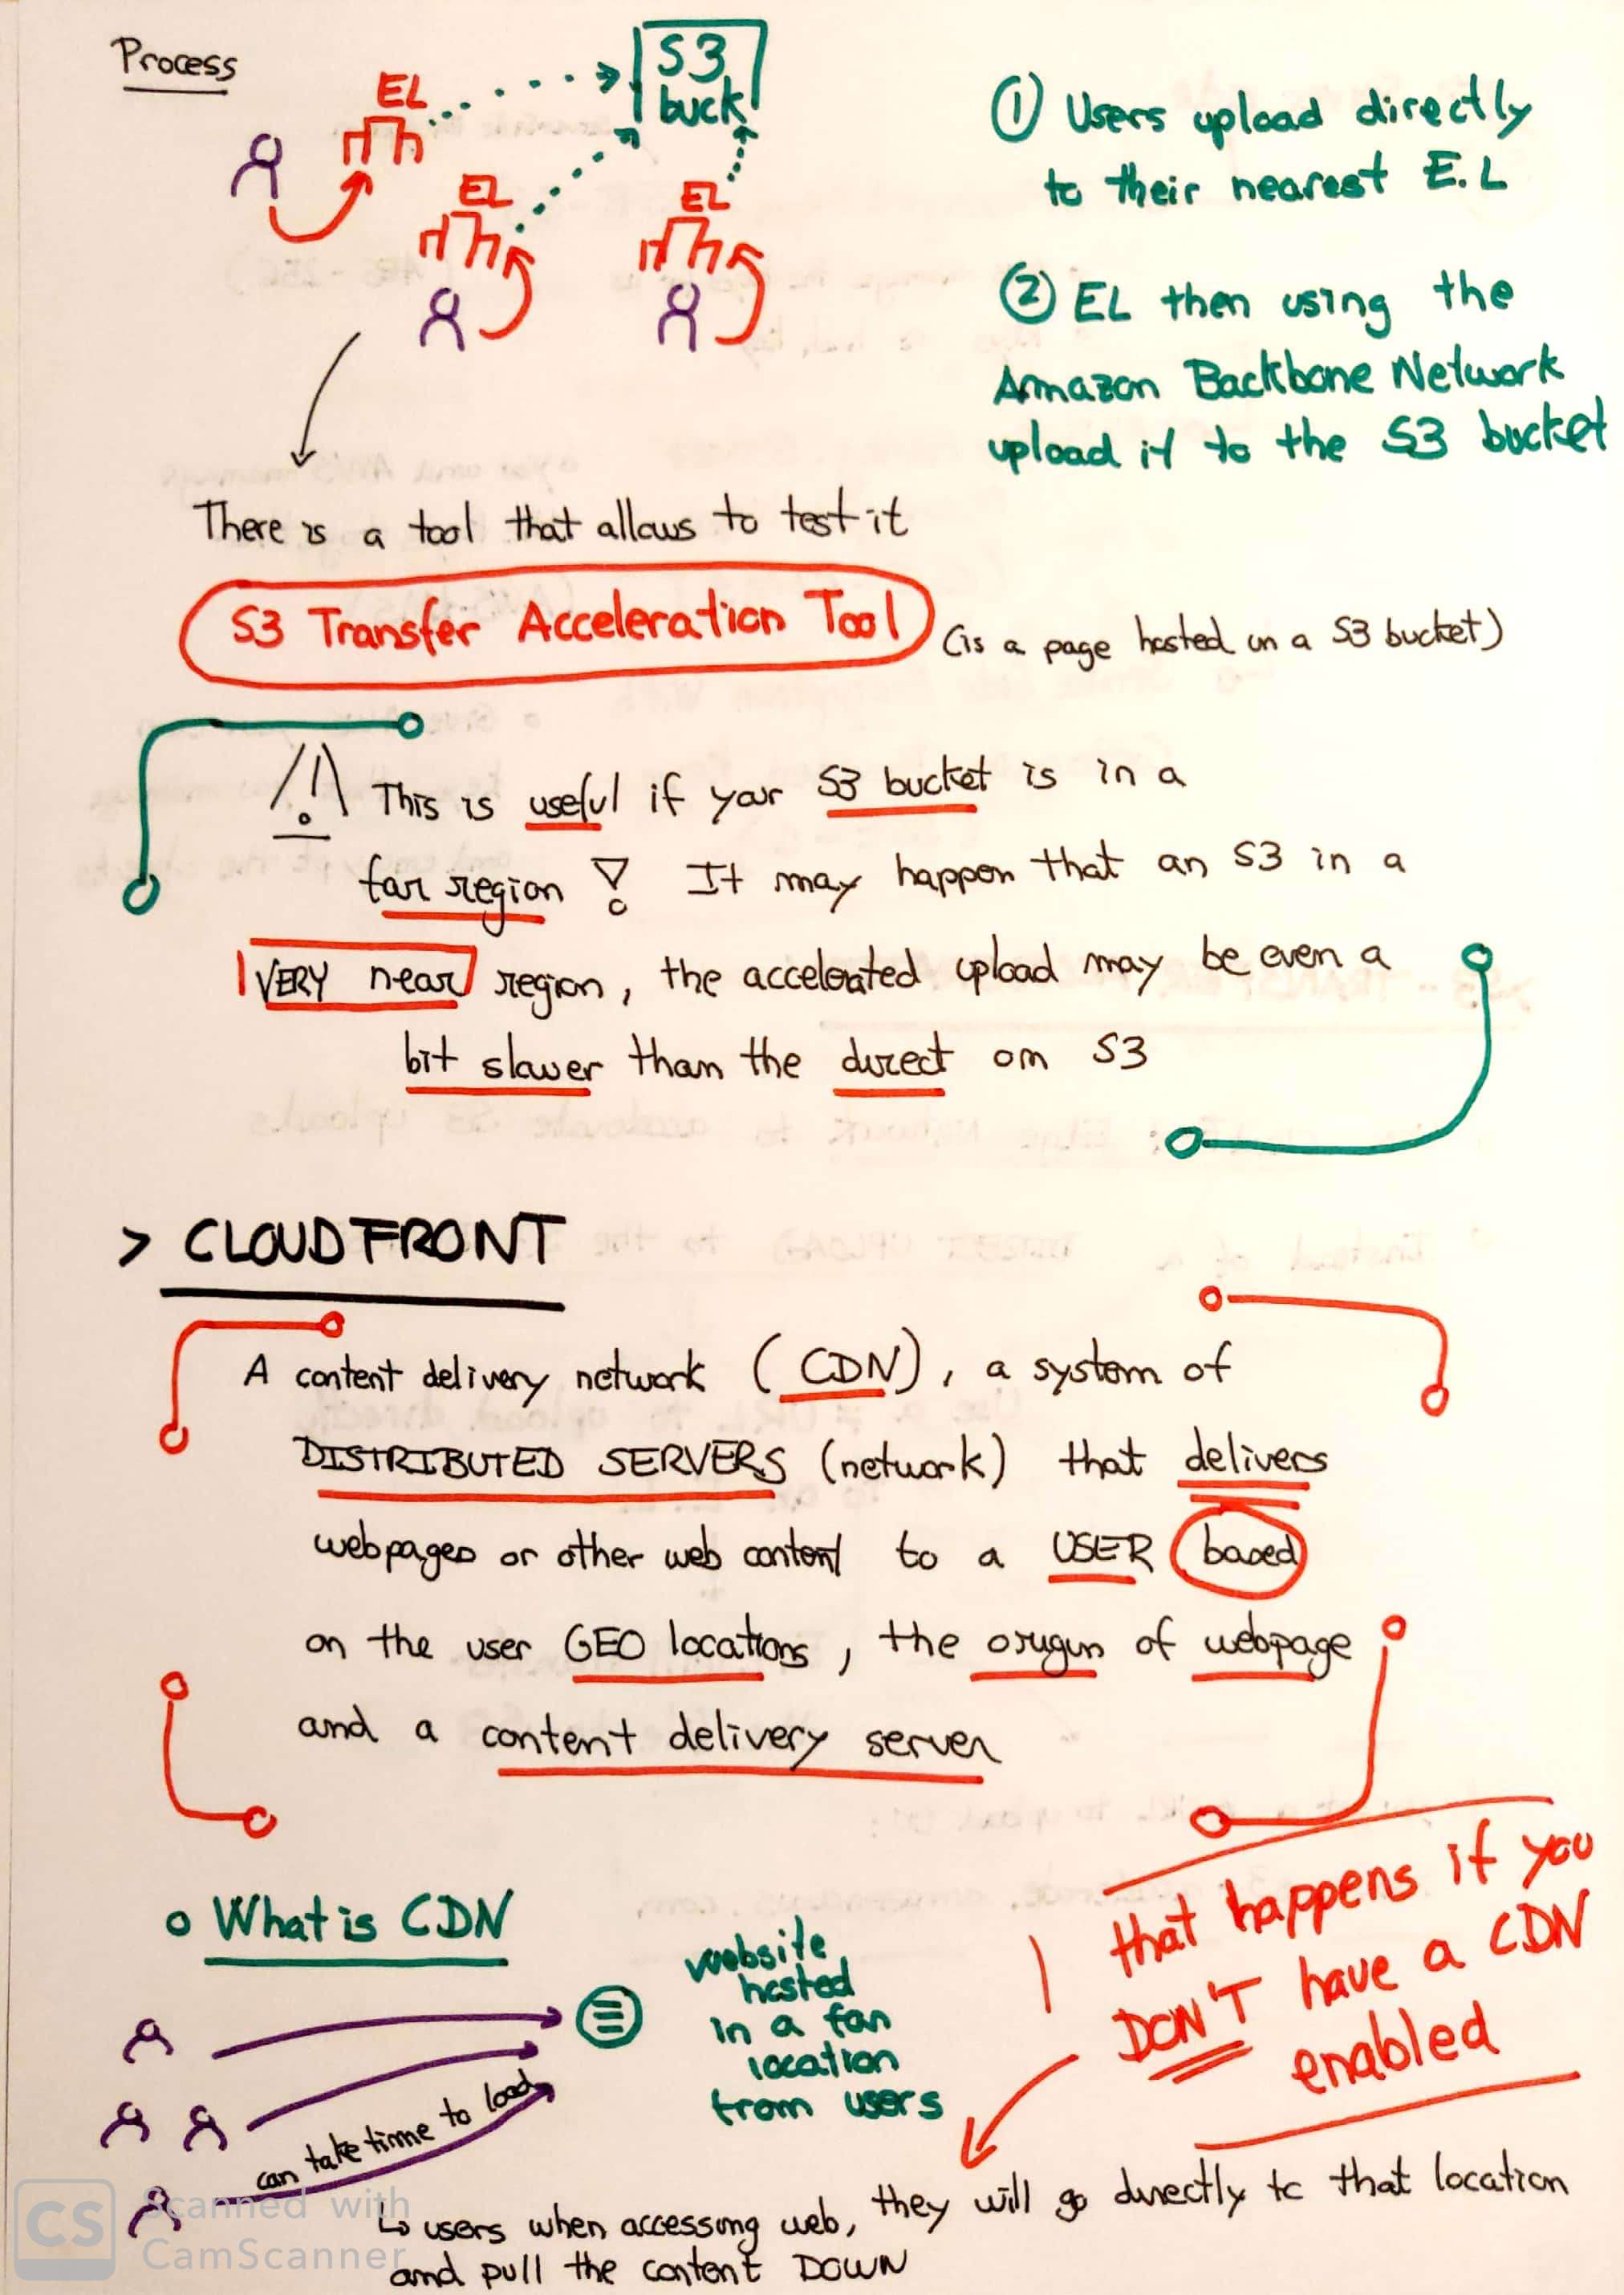 Process
EL
EL
EL
S3
buck
① Users upload directly
to their nearest E.L
② EL then using the
Amazon Backbone Network
upload it to the S3 bucket
There is a tool that allows to test it
S3 Transfer Acceleration Tool (is a page hosted on a S3 bucket)
/!\ This is useful if your S3 bucket is in a
far region ! It may happen that an S3 in a
VERY near region, the accelerated upload may be even a
bit slower than the direct on S3
> CLOUDFRONT
A content delivery network (CDN), a system of
DISTRIBUTED SERVERS (network) that delivers
webpages or other web content to a USER based
on the user GEO locations, the origin of webpage
and a content delivery server
o What is CDN
website
hosted
in a far
location
from users
that happens if you
DON'T have a CDN
enabled
can take time to load
↳ users when accessing web, they will go directly to that location
and pull the content DOWN
CS Scanned with
CamScanner